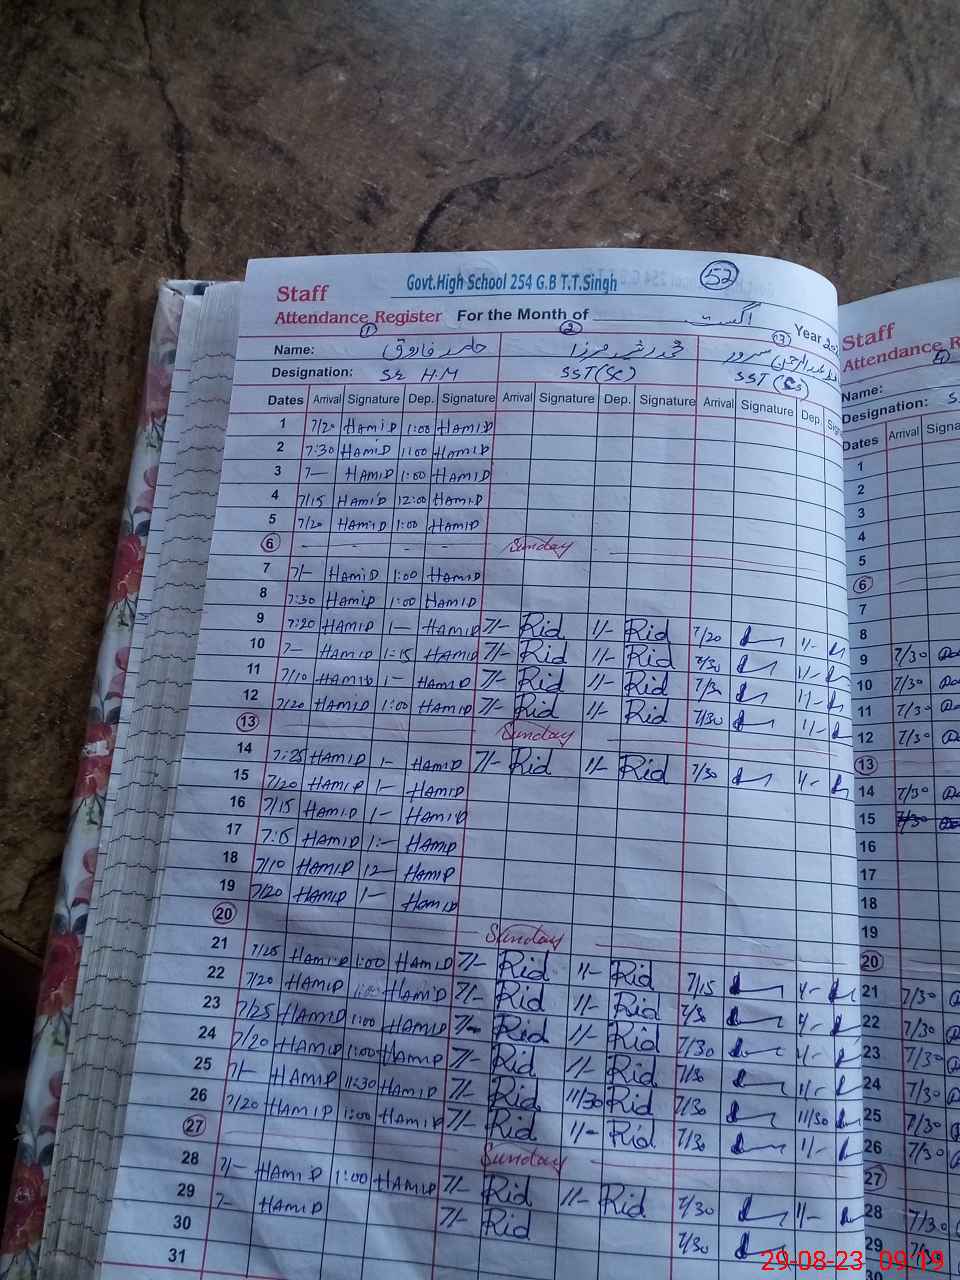 Staff
Attendance Register
Govt.High School 254 G.B T.T.Singh
52
For the Month of اگست Year
① ② ③
Name: حامد فاروق
Designation: Sr H.M SST(Sc) SST(Cs)
Dates Arrival Signature Dep. Signature Arrival Signature Dep. Signature Arrival Signature Dep.
1 7/20 HAMID 1:00 HAMID
2 7:30 HAMID 1:00 HAMID
3 7— HAMID 1:00 HAMID
4 7/15 HAMID 12:00 HAMID
5 7/20 HAMID 1:00 HAMID
6 Sunday
7 7/- HAMID 1:00 HAMID
8 7:30 HAMID 1:00 HAMID
9 7:20 HAMID 1— HAMID 7/- Rid 1/- Rid 7/20 1/-
10 7— HAMID 1:15 HAMID 7/- Rid 1/- Rid 7/30 1/-
11 7/10 HAMID 1— HAMID 7/- Rid 1/- Rid 7/30 1/-
12 7/20 HAMID 1:00 HAMID 7/- Rid 1/- Rid 7/30 1/-
13 Sunday
14 7:25 HAMID 1— HAMID 7/- Rid 1/- Rid 7/30 1/-
15 7/20 HAMID 1— HAMID
16 7/15 HAMID 1— HAMID
17 HAMID 1:- HAMID
18 7/10 HAMID 12— HAMID
19 7/20 HAMID 1— HAMID
20 Sunday
21 7/25 HAMID 1:00 HAMID 7/- Rid 1/- Rid 7/15 1/-
22 7/20 HAMID 1:00 HAMID 7/- Rid 1/- Rid 7/30 1/-
23 7/25 HAMID 1:00 HAMID 7/- Rid 1/- Rid 7/30 1/-
24 7/20 HAMID 1:00 HAMID 7/- Rid 1/- Rid 7/30 1/-
25 7/- HAMID 11:30 HAMID 7/- Rid 11/30 Rid 7/30 11/30
26 7/20 HAMID 1:00 HAMID 7/- Rid 1/- Rid 7/30 1/-
27 Sunday
28 7/- HAMID 1:00 HAMID 7/- Rid 1/- Rid 7/30 1/-
29 7— HAMID 7/- Rid 7/30
30
31
Staff
Attendance R
Name:
Designation: S
Dates Arrival Signa
1
2
3
4
5
6
7
8
9 7/30
10 7/30
11 7/30
12 7/30
13
14 7/30
15 7/30
16
17
18
19
20
21 7/30
22 7/30
23 7/30
24 7/30
25 7/30
26 7/30
27
28 7/30
29
30
29-08-23 09:19